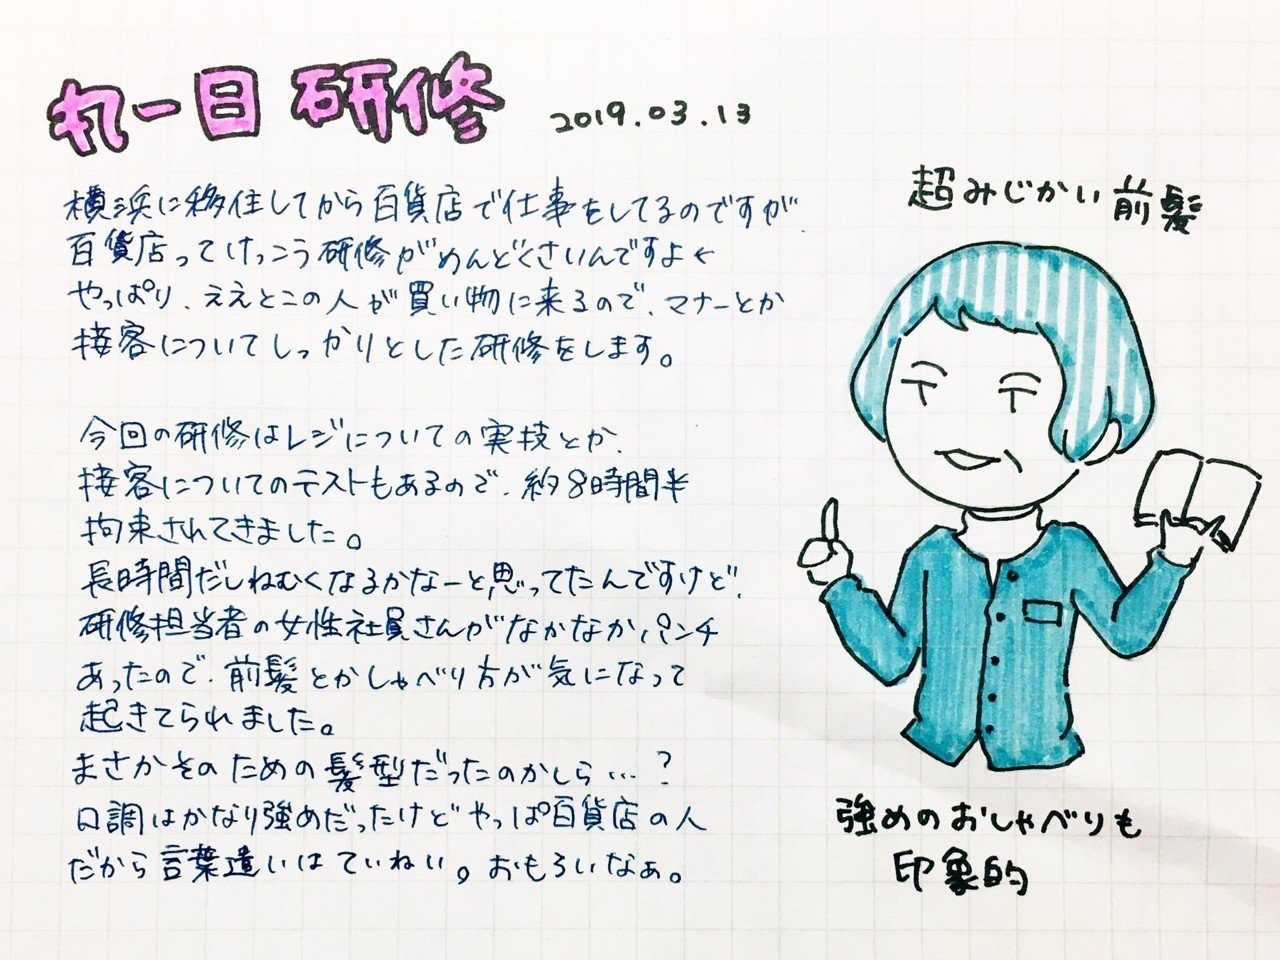 丸一日 研修
2019.03.13
横浜に移住してから百貨店で仕事をしてるのですが、
百貨店ってけっこう研修がめんどくさいんですよ←
やっぱり、ええとこの人が買い物に来るので、マナーとか
接客についてしっかりとした研修をします。
今回の研修はレジについての実技とか、
接客についてのテストもあるので、約8時間半
拘束されてきました。
長時間だしねむくなるかなーと思ってたんですけど、
研修担当者の女性社員さんがなかなかパンチ
あったので、前髪とかしゃべり方が気になって
起きてられました。
まさかそのための髪型だったのかしら…?
口調はかなり強めだったけどやっぱ百貨店の人
だから言葉遣いはていねい。おもろいなぁ。
超みじかい前髪
強めのおしゃべりも
印象的